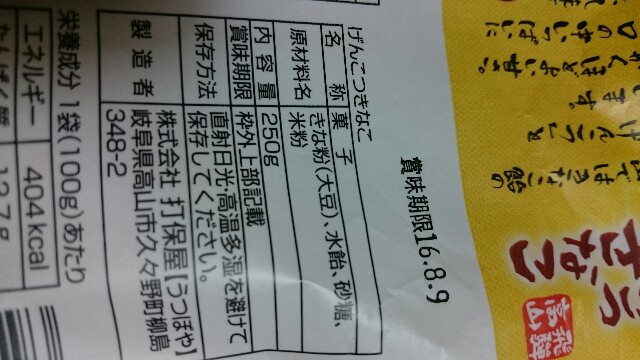 げんこつきなこ
名 称 菓 子
原材料名 きな粉(大豆)、水飴、砂糖、
米粉
内 容 量 250g
賞味期限 枠外上部記載
保存方法 直射日光、高温多湿を避けて
保存してください。
製 造 者 株式会社 打保屋【うつぼや】
岐阜県高山市久々野町柳島
348-2
賞味期限16.8.9
栄養成分 1袋(100g)あたり
エネルギー 404kcal
たんぱく質 12.7g
きなこ
飛騨
高山